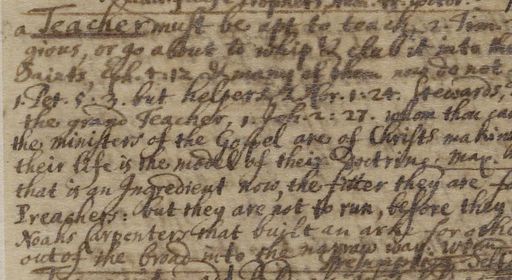 a Teacher must be apt to teach, 2. Tim.
gious, or go about to whip & club it into the
Saints, Eph. 4. 12 & many of them now do not
1. Pet. 5. 3. but helpers, 2. Cor. 1. 24. Stewards,
the grand Teacher, 1. Joh. 2: 27. whom thou
the ministers of the Gospel are of Christs making
their life is the model of their Doctrine,
that is an Ingredient now, the fitter they are
Preachers: but they are not to run, before they
Noahs Carpenters that built an arke for
out of the broad into the narrow way, when